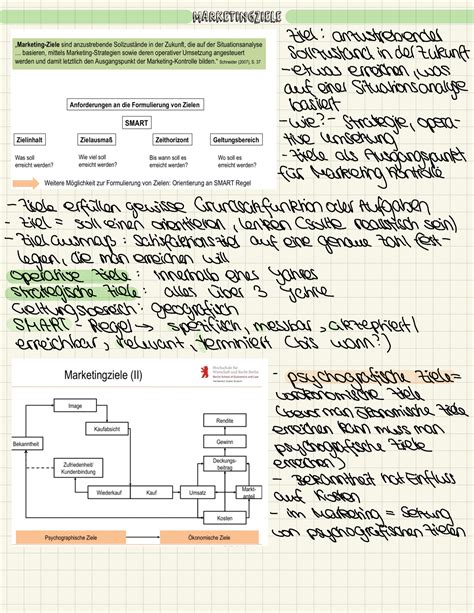 MARKETINGZIELE
„Marketing-Ziele sind anzustrebende Sollzustände in der Zukunft, die auf der Situationsanalyse
... basieren, mittels Marketing-Strategien sowie deren operativer Umsetzung angesteuert
werden und damit letztlich den Ausgangspunkt der Marketing-Kontrolle bilden.“ Schneider (2007), S. 37
Anforderungen an die Formulierung von Zielen
SMART
Zielinhalt
Zielausmaß
Zeithorizont
Geltungsbereich
Was soll
erreicht werden?
Wie viel soll
erreicht werden?
Bis wann soll es
erreicht werden?
Wo soll es
erreicht werden?
Weitere Möglichkeit zur Formulierung von Zielen: Orientierung an SMART Regel
Ziel: anzustrebender
Sollzustand in der Zukunft
- etwas erreichen, was
auf einer Situationsanalyse
basiert
- wie? - Strategie, opera-
tive Umsetzung
- Ziele als Ausgangspunkt
für Marketing Kontrolle
- Ziele erfüllen gewisse Grundsatzfunktion oder Aufgaben
- Ziel = soll einen orientieren, lenken (sollte realistisch sein)
- Zielausmaß: auf eine genaue Zahl fest-
legen, die man erreichen will
operative Ziele: innerhalb eines Jahres
strategische Ziele: alles über 3 Jahre
Geltungsbereich: geografisch
SMART - Regel → spezifisch, messbar, akzeptiert/
erreichbar, relevant, terminiert (bis wann?)
Marketingziele (II)
Hochschule für
Wirtschaft und Recht Berlin
Berlin School of Economics and Law
Image
Kaufabsicht
Bekanntheit
Zufriedenheit/
Kundenbindung
Wiederkauf
Kauf
Umsatz
Markt-
anteil
Rendite
Gewinn
Deckungs-
beitrag
Kosten
Psychographische Ziele
Ökonomische Ziele
- psychografische Ziele=
vorökonomische Ziele
(bevor man ökonomische Ziele
erreichen kann muss man
psychografische Ziele
erreichen)
- Bekanntheit hat Einfluss
auf Kosten
- im Marketing = Setzung
von psychografischen Zielen